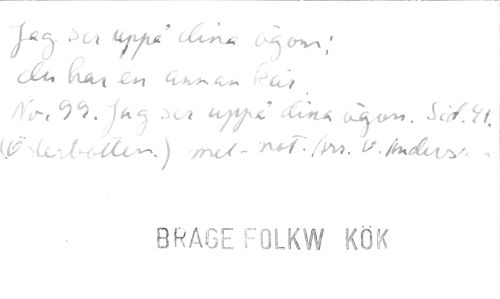 Jag ser uppå dina ögon;
du har en annan kär
No. 99. Jag ser uppå dina ögon. Sid. 41.
(Österbotten.) mel-not. V. Anders
BRAGE FOLKW KÖK